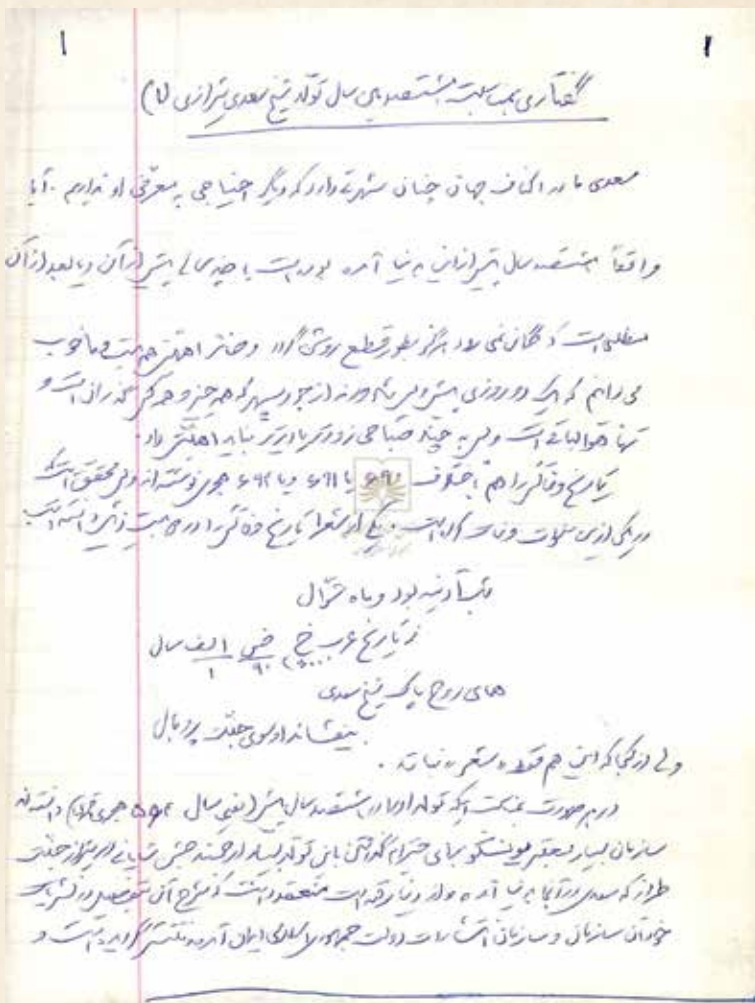 ۱ ۱
گفتاری بمناسبت هشتصدمین سال تولد شیخ سعدی شیرازی (۱)
سعدی ما در اکناف جهان چنان شهرتی دارد که دیگر احتیاجی به معرفی او نداریم. آیا
واقعاً هشتصد سال پیش ازین به دنیا آمده بوده است یا چند سالی پیش از آن و یا بعد از آن
مطلبی است که گمان نمی‌رود هرگز بطور قطع روشن گردد و حائز اهمیتی هم نیست و ما خوب
می‌دانیم که یک دو روزی پیش و پس شد ورنه از جور سپهر که همه چیز و همه کس گذران است و
تنها هوالباقی است ولی به چند صباحی زودتر یا دیرتر نباید اهمیتی داد.
تاریخ وفاتش را هم باختلاف ۶۹۰ یا ۶۹۱ و یا ۶۹۴ هجری نوشته‌اند ولی محقق است که
در یکی ازین سنوات وفات کرده است. یکی از شعرا تاریخ وفاتش را در دو بیت زیر
شب آدینه بود و ماه شوال
ز تاریخ عرب خ ص الف سال
۶۰۰ ۹۰ ۱
همای روح پاک شیخ سعدی
بیفشاند او سوی جنت پر و بال
ولی از کجا که این هم قول شاعرانه نباشد.
در هر صورت تولد او را در هشتصد سال پیش (یعنی سال هجری قمری) دانسته‌اند
سازمان بسیار معتبر یونسکو برای احترام گذاشتن باین تولد بسیار ارجمند جشن شایانی در شیراز جنت
طراز که سعدی در آنجا به دنیا آمده و از دنیا رفته است منعقد داشت که شرح آن بتفصیل در نشریات
خود آن سازمان و سازمان انتشارات دولت جمهوری اسلامی ایران آمده و منتشر گردیده است و